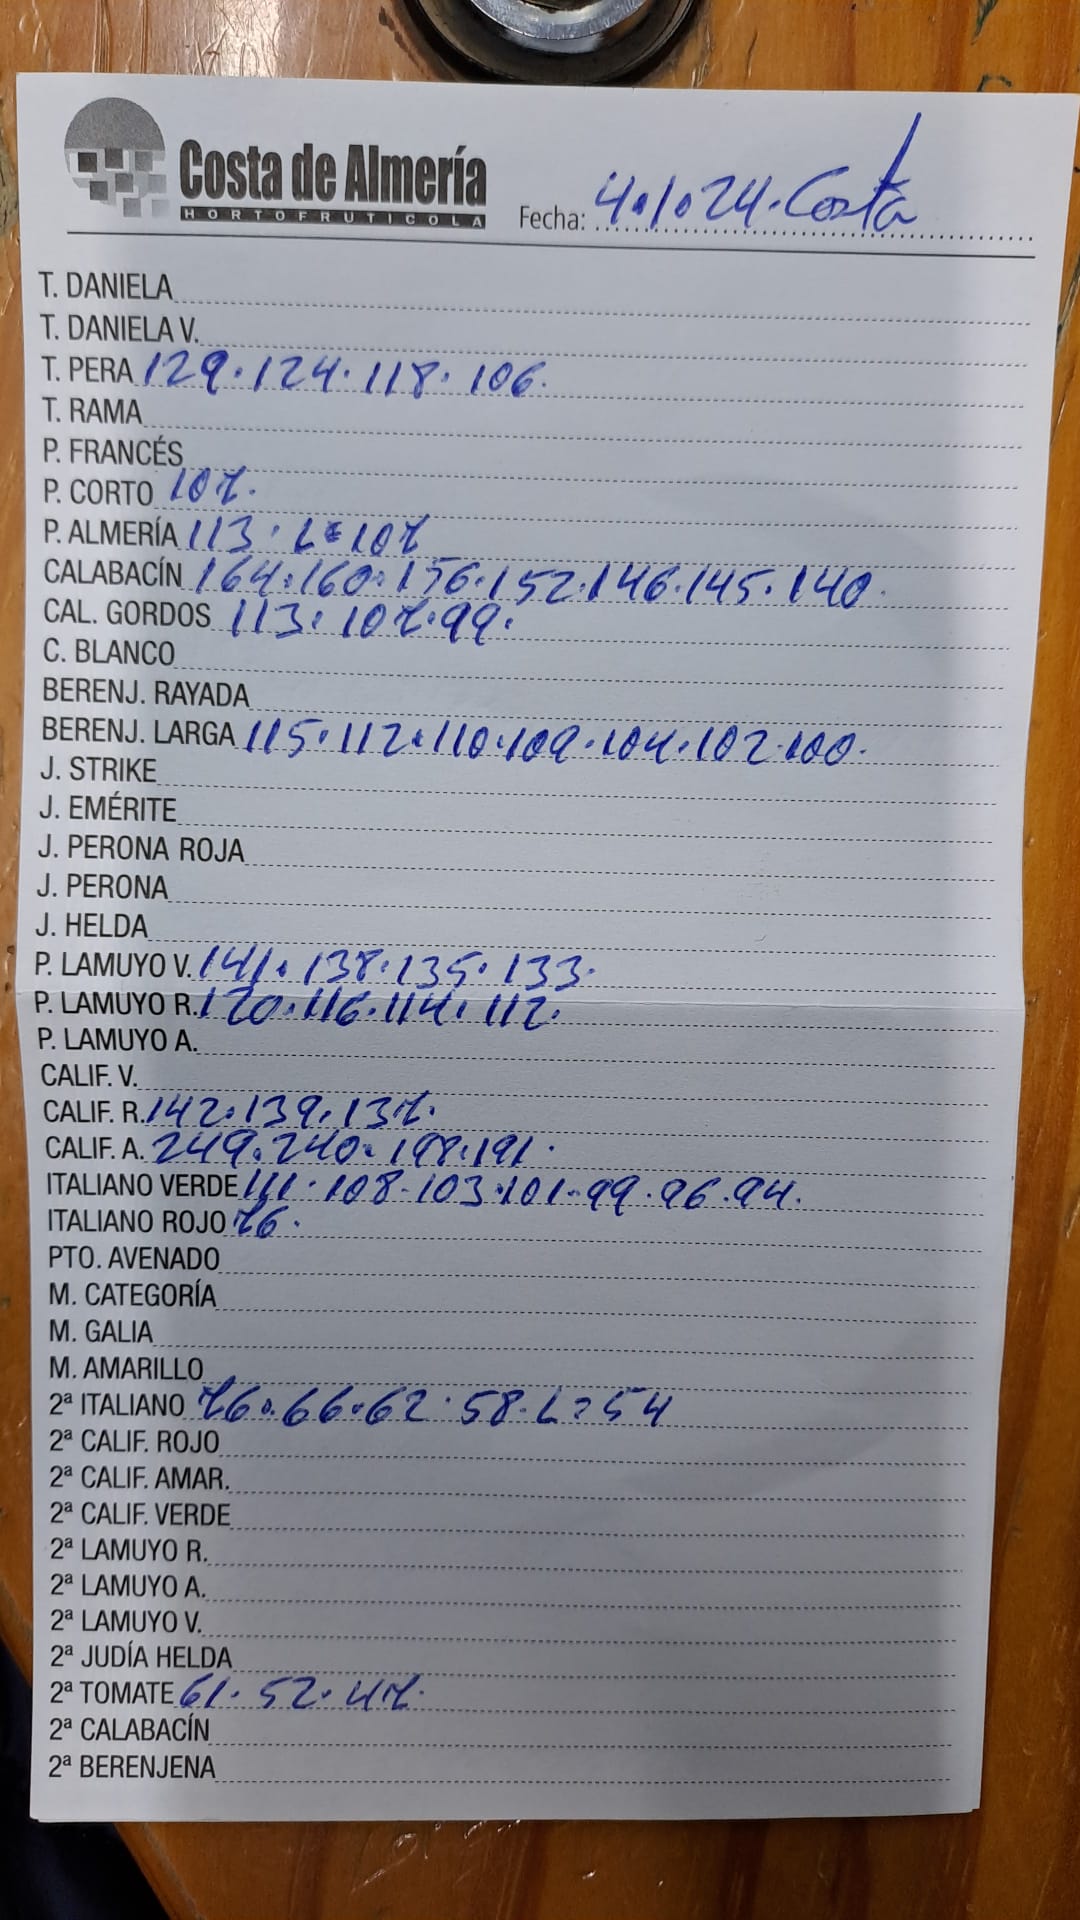 Costa de Almería
HORTOFRUTICOLA
Fecha: 4.1.24. Costa
T. DANIELA
T. DANIELA V.
T. PERA 129.124.118.106.
T. RAMA
P. FRANCÉS
P. CORTO 107.
P. ALMERÍA 113. L=107
CALABACÍN 164.160.156.152.146.145.140.
CAL. GORDOS 113.107.99.
C. BLANCO
BERENJ. RAYADA
BERENJ. LARGA 115.112.110.109.104.102.100.
J. STRIKE
J. EMÉRITE
J. PERONA ROJA
J. PERONA
J. HELDA
P. LAMUYO V. 141.138.135.133.
P. LAMUYO R. 120.116.114.112.
P. LAMUYO A.
CALIF. V.
CALIF. R. 142.139.137.
CALIF. A. 249.240.198.191.
ITALIANO VERDE 111.108.103.101.99.96.94.
ITALIANO ROJO 76.
PTO. AVENADO
M. CATEGORÍA
M. GALIA
M. AMARILLO
2ª ITALIANO 76.66.62.58.L=54
2ª CALIF. ROJO
2ª CALIF. AMAR.
2ª CALIF. VERDE
2ª LAMUYO R.
2ª LAMUYO A.
2ª LAMUYO V.
2ª JUDÍA HELDA
2ª TOMATE 61.52.47.
2ª CALABACÍN
2ª BERENJENA